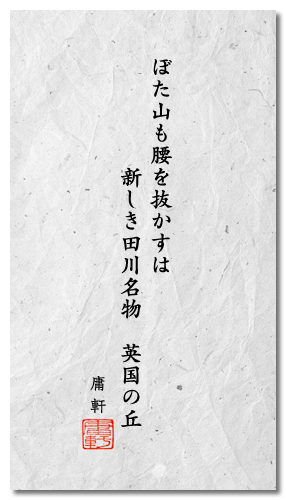 ぼた山も腰を抜かすは
新しき田川名物　英国の丘
庸軒
庸軒